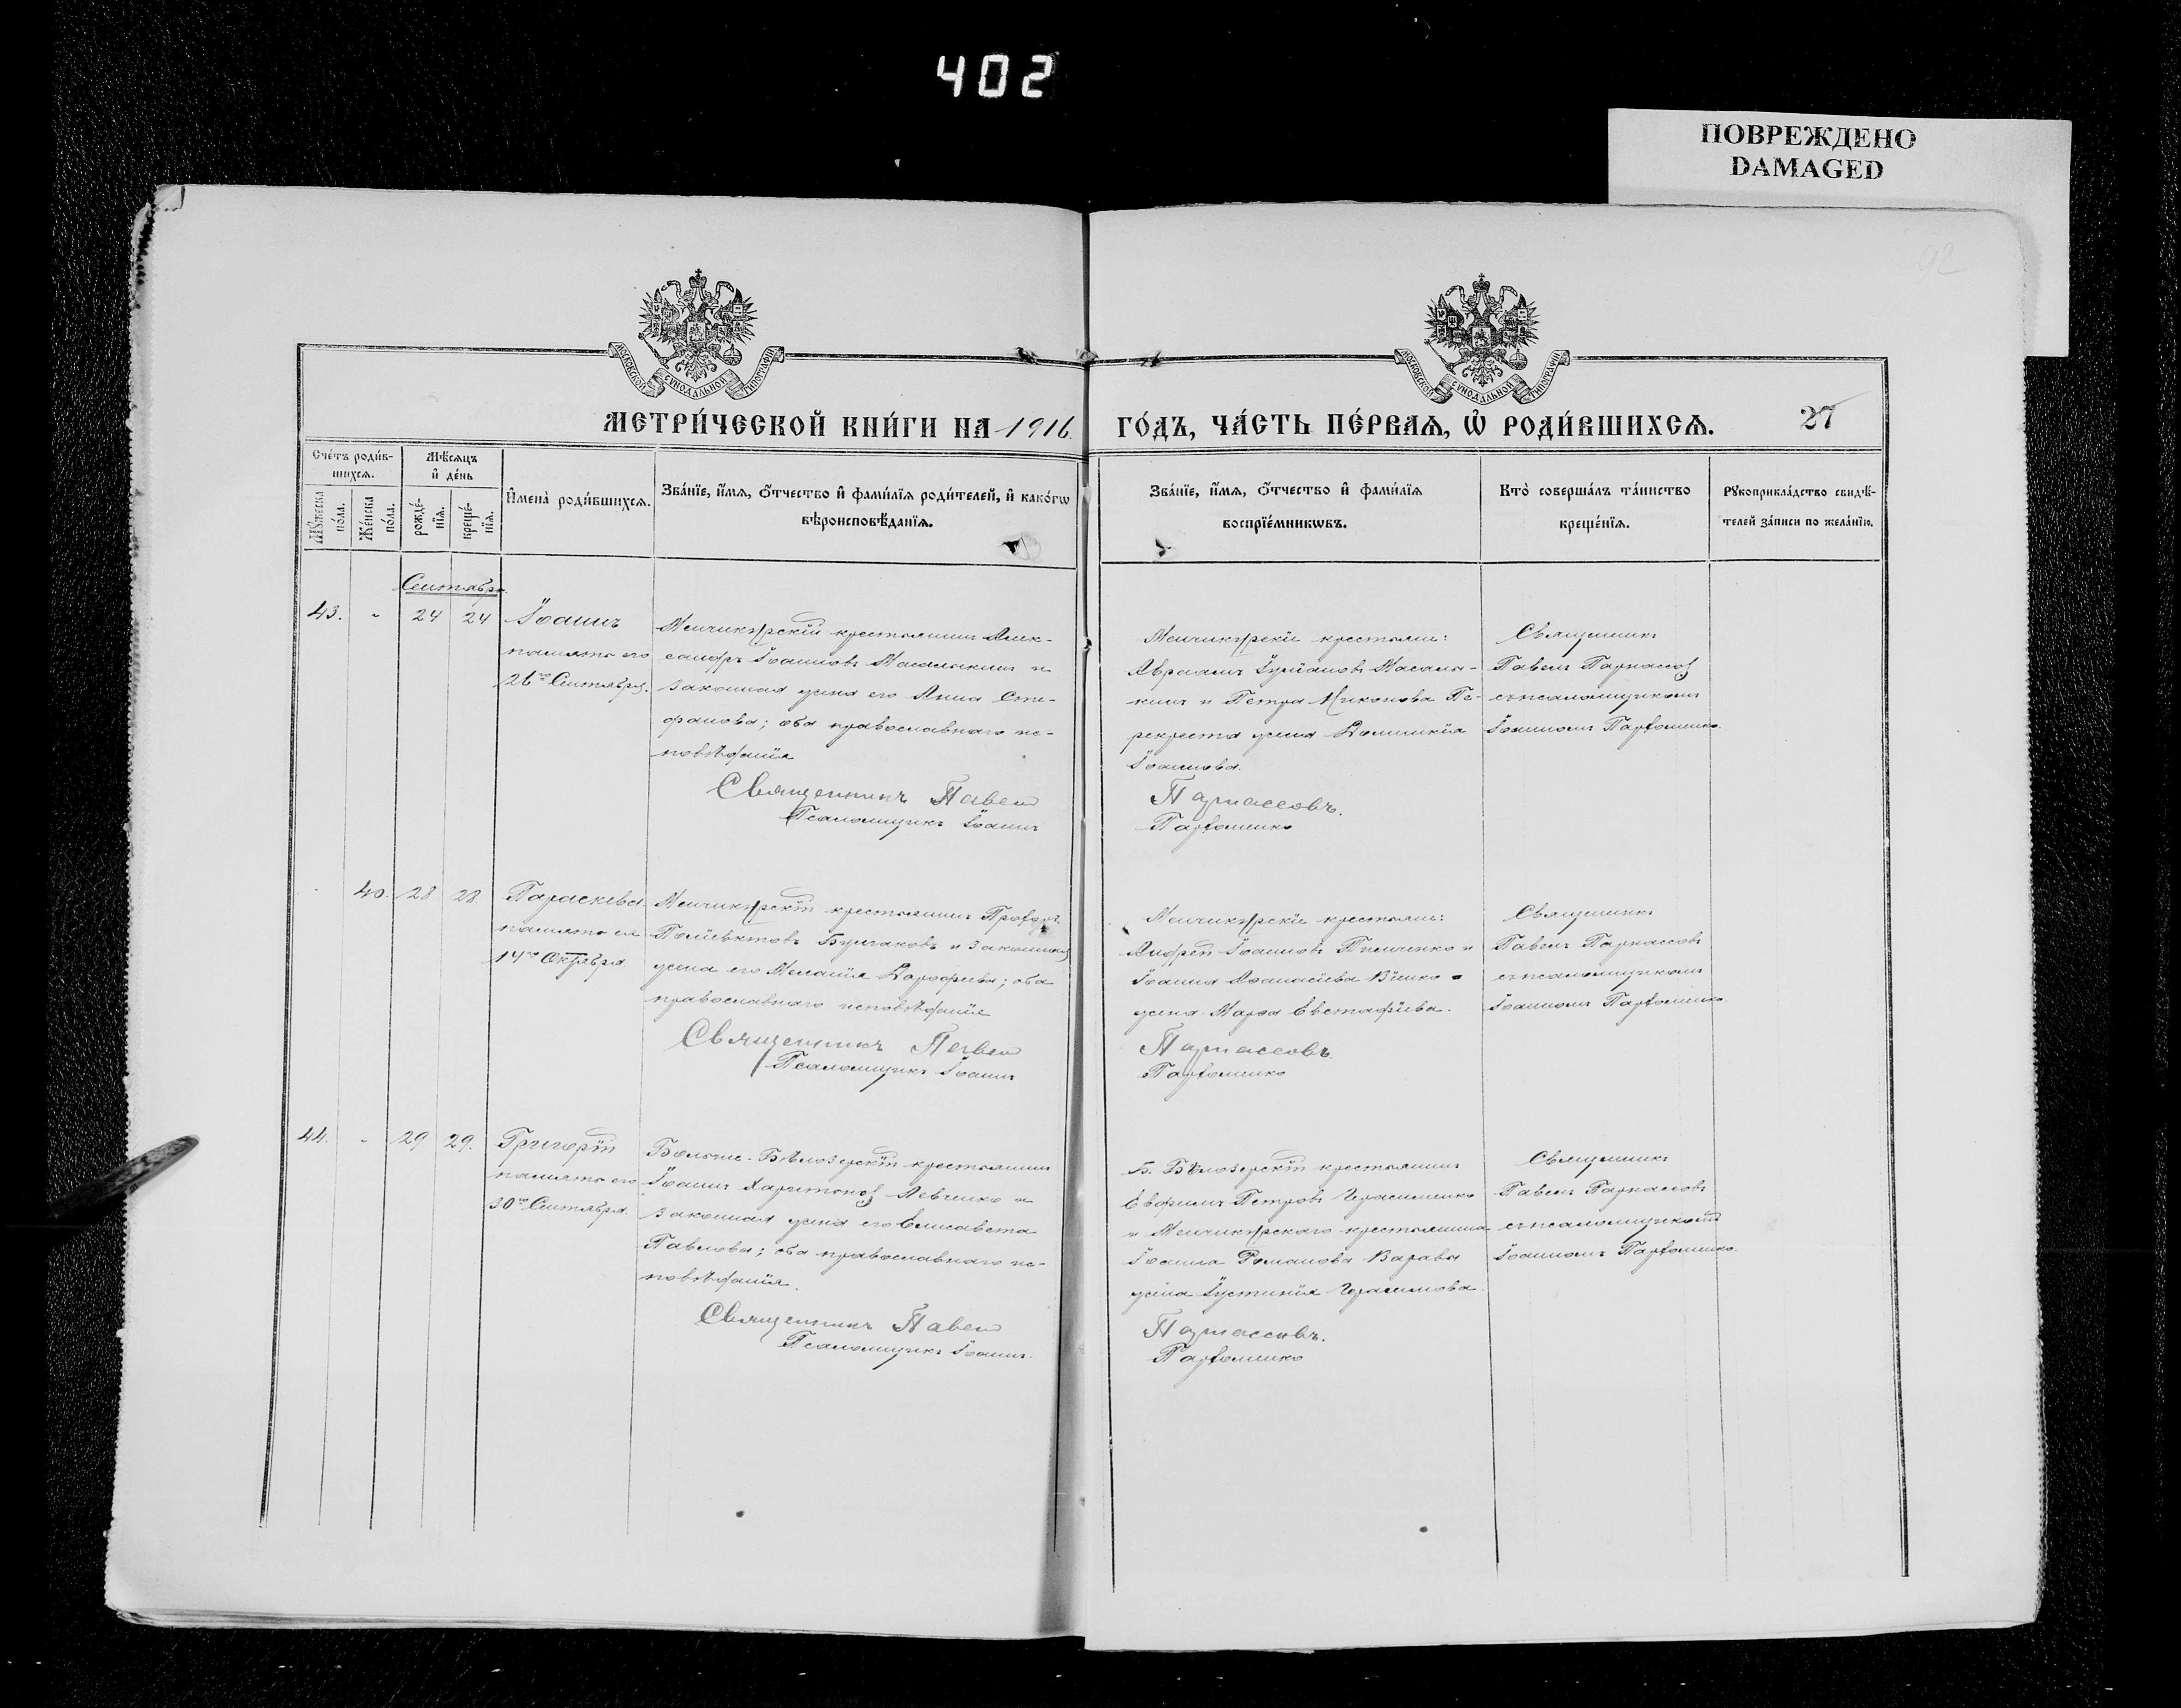 402
ПОВРЕЖДЕНО
DAMAGED
МОСКОВСКОЙ СѴНОДАЛЬНОЙ ТИПОГРАФІИ
МОСКОВСКОЙ СѴНОДАЛЬНОЙ ТИПОГРАФІИ
МЕТРИ́ЧЕСКОЙ КНИ́ГИ НА 1916
ГО́ДЪ, ЧА́СТЬ ПЕ́РВАѦ, Ѡ҆ РОДИ́ВШИХСѦ. 27
Сче́тъ роди́в-
шихсѧ.
Мꙋ́жеска по́ла.
Же́нска по́ла.
Мѣ́сѧцъ
и҆ де́нь
рожде́-нїѧ.
креще́-нїѧ.
И҆мена̀ роди́вшихсѧ.
Зва́нїе, и҆́мѧ, ѻ҆́тчество и҆ фами́лїѧ роди́телей, и҆ како́гѡ
вѣроисповѣ́данїѧ.
Зва́нїе, и҆́мѧ, ѻ҆́тчество и҆ фами́лїѧ
воспрїе́мникѡвъ.
Кто̀ соверша́лъ та́инство
креще́нїѧ.
Рꙋкоприкла́дство свидѣ́-
телей за́писи по жела́нїю.
Сентябрь
43. - 24 24 Іоаннъ
память его
26го Сентября.
Менчикурскій крестьянинъ Алек-
сандръ Іоанновъ Масалыкинъ и
законная жена его Анна Сте-
фанова; оба православнаго ис-
повѣданія
Священникъ Павелъ
Псаломщикъ Іоаннъ
Менчикурскіе крестьяне:
Авраамъ Масалы-
кинъ и Петра Пе-
рекреста жена Домникія
Іоаннова.
Парнассовъ.
Пархоменко
Священникъ
Павелъ Парнассовъ
съ псаломщикомъ
Іоанномъ Пархоменко
40. 28 28. Параскева
память ея
14го Октября
Менчикурскій крестьянинъ
Поліевктовъ Булгаковъ и законная
жена его Меланія Дорофеева; оба
православнаго исповѣданія
Священникъ Павелъ
Псаломщикъ Іоаннъ
Менчикурскіе крестьяне:
Андрей Іоанновъ Пилипенко и
Іоанна Аѳанасіева
жена Марѳа Евстафіева.
Парнассовъ.
Пархоменко
Священникъ
Павелъ Парнассовъ
съ псаломщикомъ
Іоанномъ Пархоменко
44. - 29 29. Григорій
память его
30го Сентября.
Больше-Бѣлозерскій крестьянинъ
Іоаннъ Харитоновъ Левченко и
законная жена его Елисавета
Павлова; оба православнаго ис-
повѣданія.
Священникъ Павелъ
Псаломщикъ Іоаннъ.
Б. Бѣлозерскій крестьянинъ
Евфимъ Петровъ Герасименко
и Менчикурскаго крестьянина
Іоанна Романова Варавы
жена Іустинія Герасимова.
Парнассовъ.
Пархоменко
Священникъ
Павелъ Парнассовъ
съ псаломщикомъ
Іоанномъ Пархоменко.